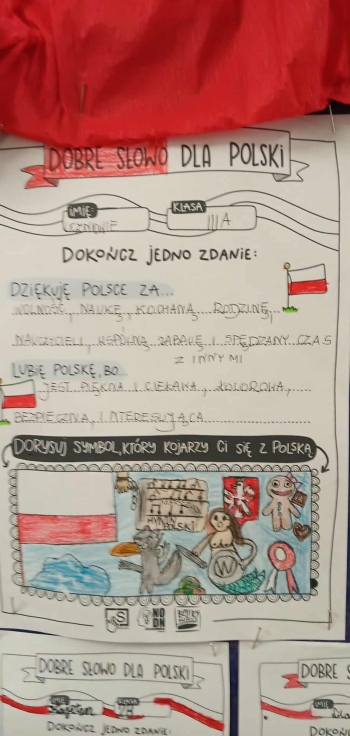 DOBRE SŁOWO DLA POLSKI
IMIĘ
KLASA
III A
DOKOŃCZ JEDNO ZDANIE:
DZIĘKUJĘ POLSCE ZA...
WOLNOŚĆ, NAUKĘ, KOCHANĄ RODZINĘ,
NAUCZYCIELI, WSPÓLNĄ ZABAWĘ I SPĘDZANY CZAS
Z INNYMI
LUBIĘ POLSKĘ, BO...
JEST PIĘKNA I CIEKAWA, KOLOROWA,
BEZPIECZNA, INTERESUJĄCA
DORYSUJ SYMBOL, KTÓRY KOJARZY CI SIĘ Z POLSKĄ
W
DOBRE SŁOWO DLA POLSKI
IMIĘ
KLASA
DOKOŃCZ JEDNO ZDANIE:
DOBRE S
IMIĘ
DOKOŃ